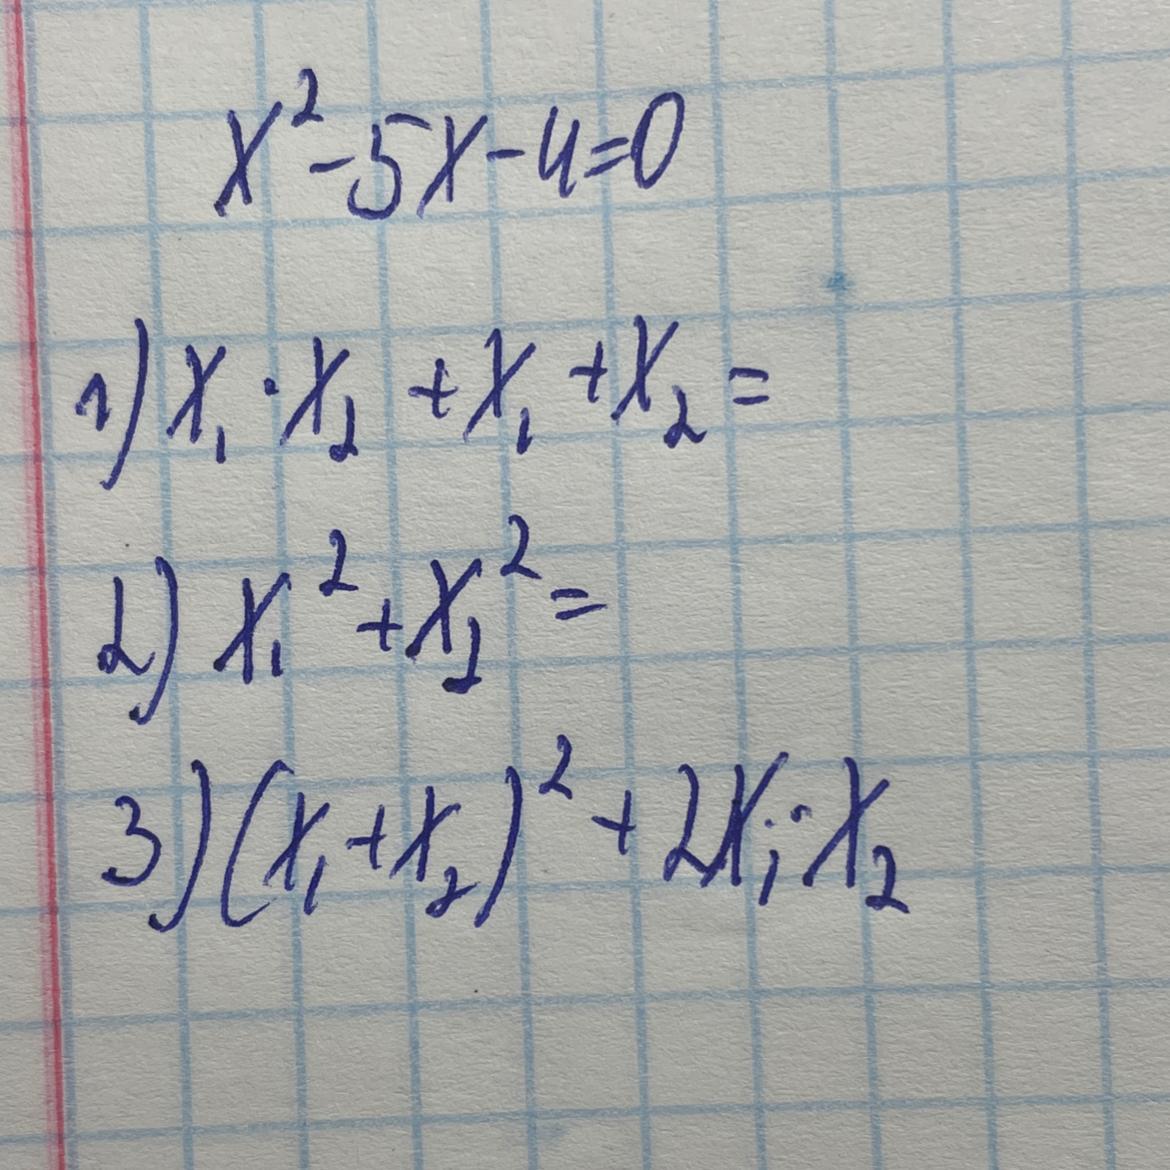 x²-5x-4=0
1) x₁·x₂+x₁+x₂=
2) x₁²+x₂²=
3) (x₁+x₂)²+2x₁·x₂